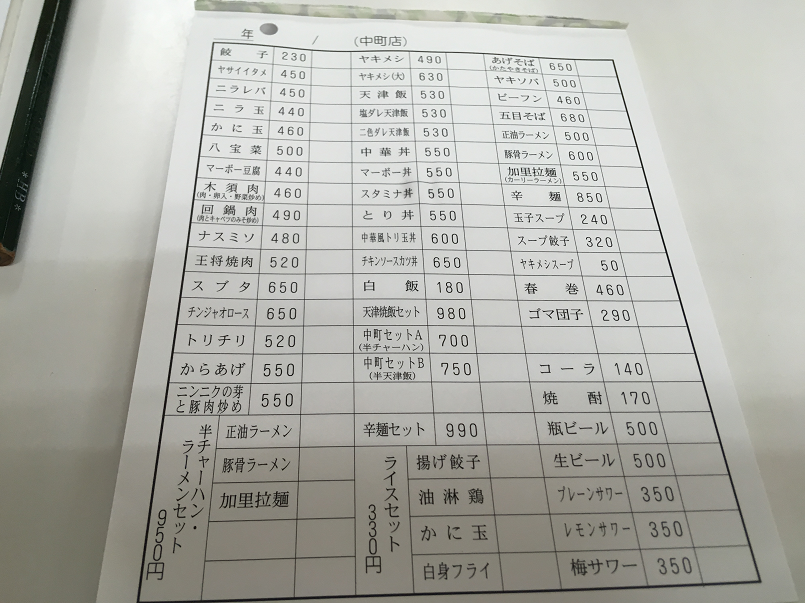 年 / (中町店)
餃子 230
ヤサイイタメ 450
ニラレバ 450
ニラ玉 440
かに玉 460
八宝菜 500
マーボー豆腐 440
木須肉 460
(肉・卵入・野菜炒め)
回鍋肉 490
(肉とキャベツのみそ炒め)
ナスミソ 480
王将焼肉 520
スブタ 650
チンジャオロース 650
トリチリ 520
からあげ 550
ニンニクの芽
と豚肉炒め 550
ヤキメシ 490
ヤキメシ(大) 630
天津飯 530
塩ダレ天津飯 530
二色ダレ天津飯 530
中華丼 550
マーボー丼 550
スタミナ丼 550
とり丼 550
中華風トリ玉丼 600
チキンソースカツ丼 650
白飯 180
天津焼飯セット 980
中町セットA 700
(半チャーハン)
中町セットB 750
(半天津飯)
あげそば 650
(かたやきそば)
ヤキソバ 500
ビーフン 460
五目そば 680
正油ラーメン 500
豚骨ラーメン 600
加里拉麺 550
(カーリーラーメン)
辛麺 850
玉子スープ 240
スープ餃子 320
ヤキメシスープ 50
春巻 460
ゴマ団子 290
コーラ 140
焼酎 170
瓶ビール 500
生ビール 500
プレーンサワー 350
レモンサワー 350
梅サワー 350
半チャーハン・
ラーメンセット
950円
正油ラーメン
豚骨ラーメン
加里拉麺
辛麺セット 990
ライスセット
330円
揚げ餃子
油淋鶏
かに玉
白身フライ
HB